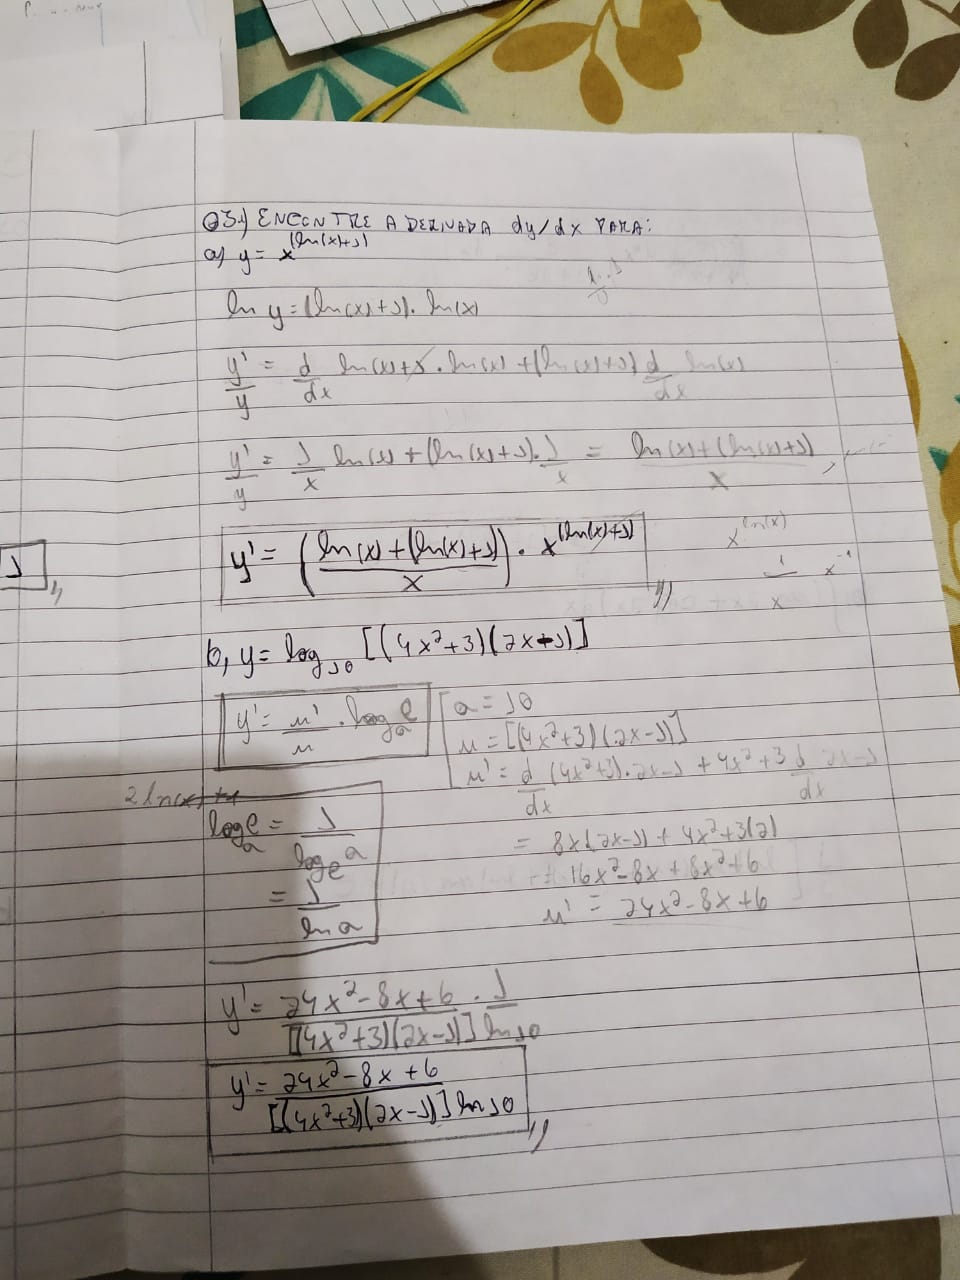 Q3.) ENCONTRE A DERIVADA dy/dx PARA:
a) y = x^(ln(x)+1)
ln y = (ln(x)+1). ln(x)
y'/y = d/dx ln(x)+1 . ln(x) + (ln(x)+1) d/dx ln(x)
y'/y = 1/x ln(x) + (ln(x)+1). 1/x = ln(x)+(ln(x)+1)/x
y' = (ln(x)+(ln(x)+1)/x) . x^(ln(x)+1)
x^ln(x)
1/x x^-1
1
b) y = log_10 [(4x²+3)(2x-1)]
y' = u'/u . log_a e
a = 10
u = [(4x²+3)(2x-1)]
u' = d/dx (4x²+3).2x-1 + 4x²+3 d/dx 2x-1
= 8x(2x-1) + 4x²+3(2)
= 16x²-8x+8x²+6
u' = 24x²-8x+6
2ln(x)+1
log_a e = 1/log_e a
= 1/ln a
y' = 24x²-8x+6/[(4x²+3)(2x-1)] . 1/ln 10
y' = 24x²-8x+6/[(4x²+3)(2x-1)] ln 10